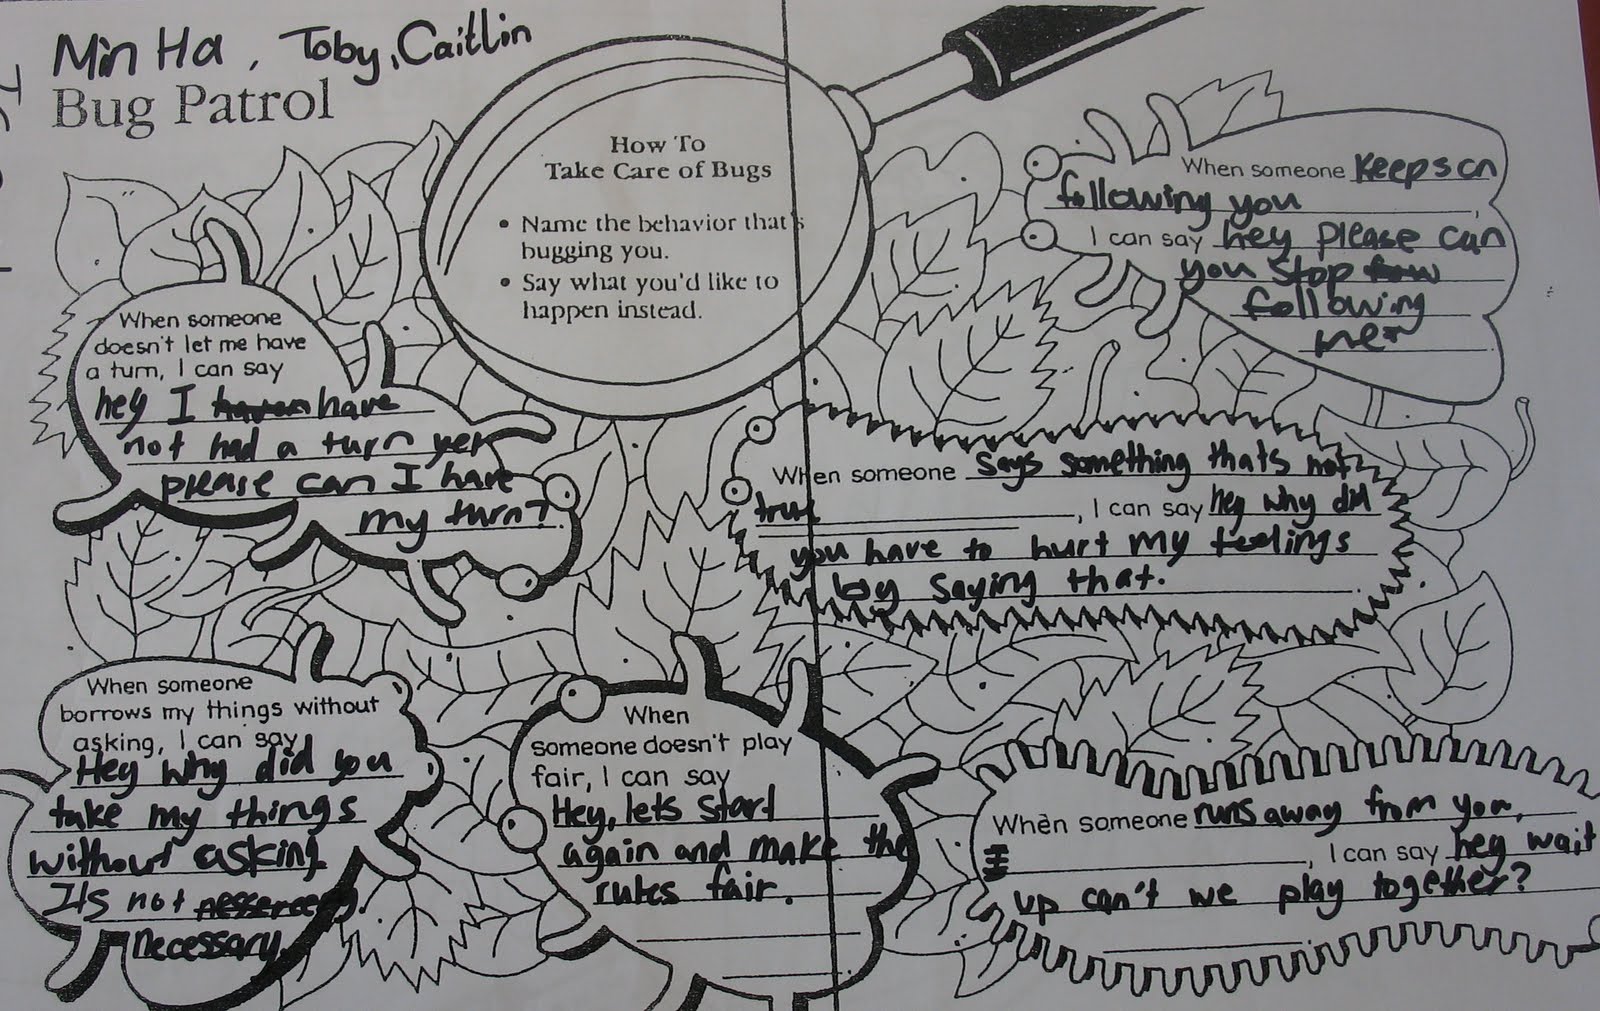 Min Ha, Toby, Caitlin
Bug Patrol
How To
Take Care of Bugs
• Name the behavior that's
bugging you.
• Say what you'd like to
happen instead.
When someone keeps on
following you,
I can say hey please can
you stop
following
me
When someone
doesn't let me have
a turn, I can say
hey I have
not had a turn yet
please can I have
my turn?
When someone says something thats not
true, I can say hey why did
you have to hurt my feelings
by saying that.
When someone
borrows my things without
asking, I can say
Hey why did you
take my things
without asking
Its not
necessary.
When
someone doesn't play
fair, I can say
Hey, lets start
again and make the
rules fair.
When someone runs away from you,
, I can say hey wait
up can't we play together?